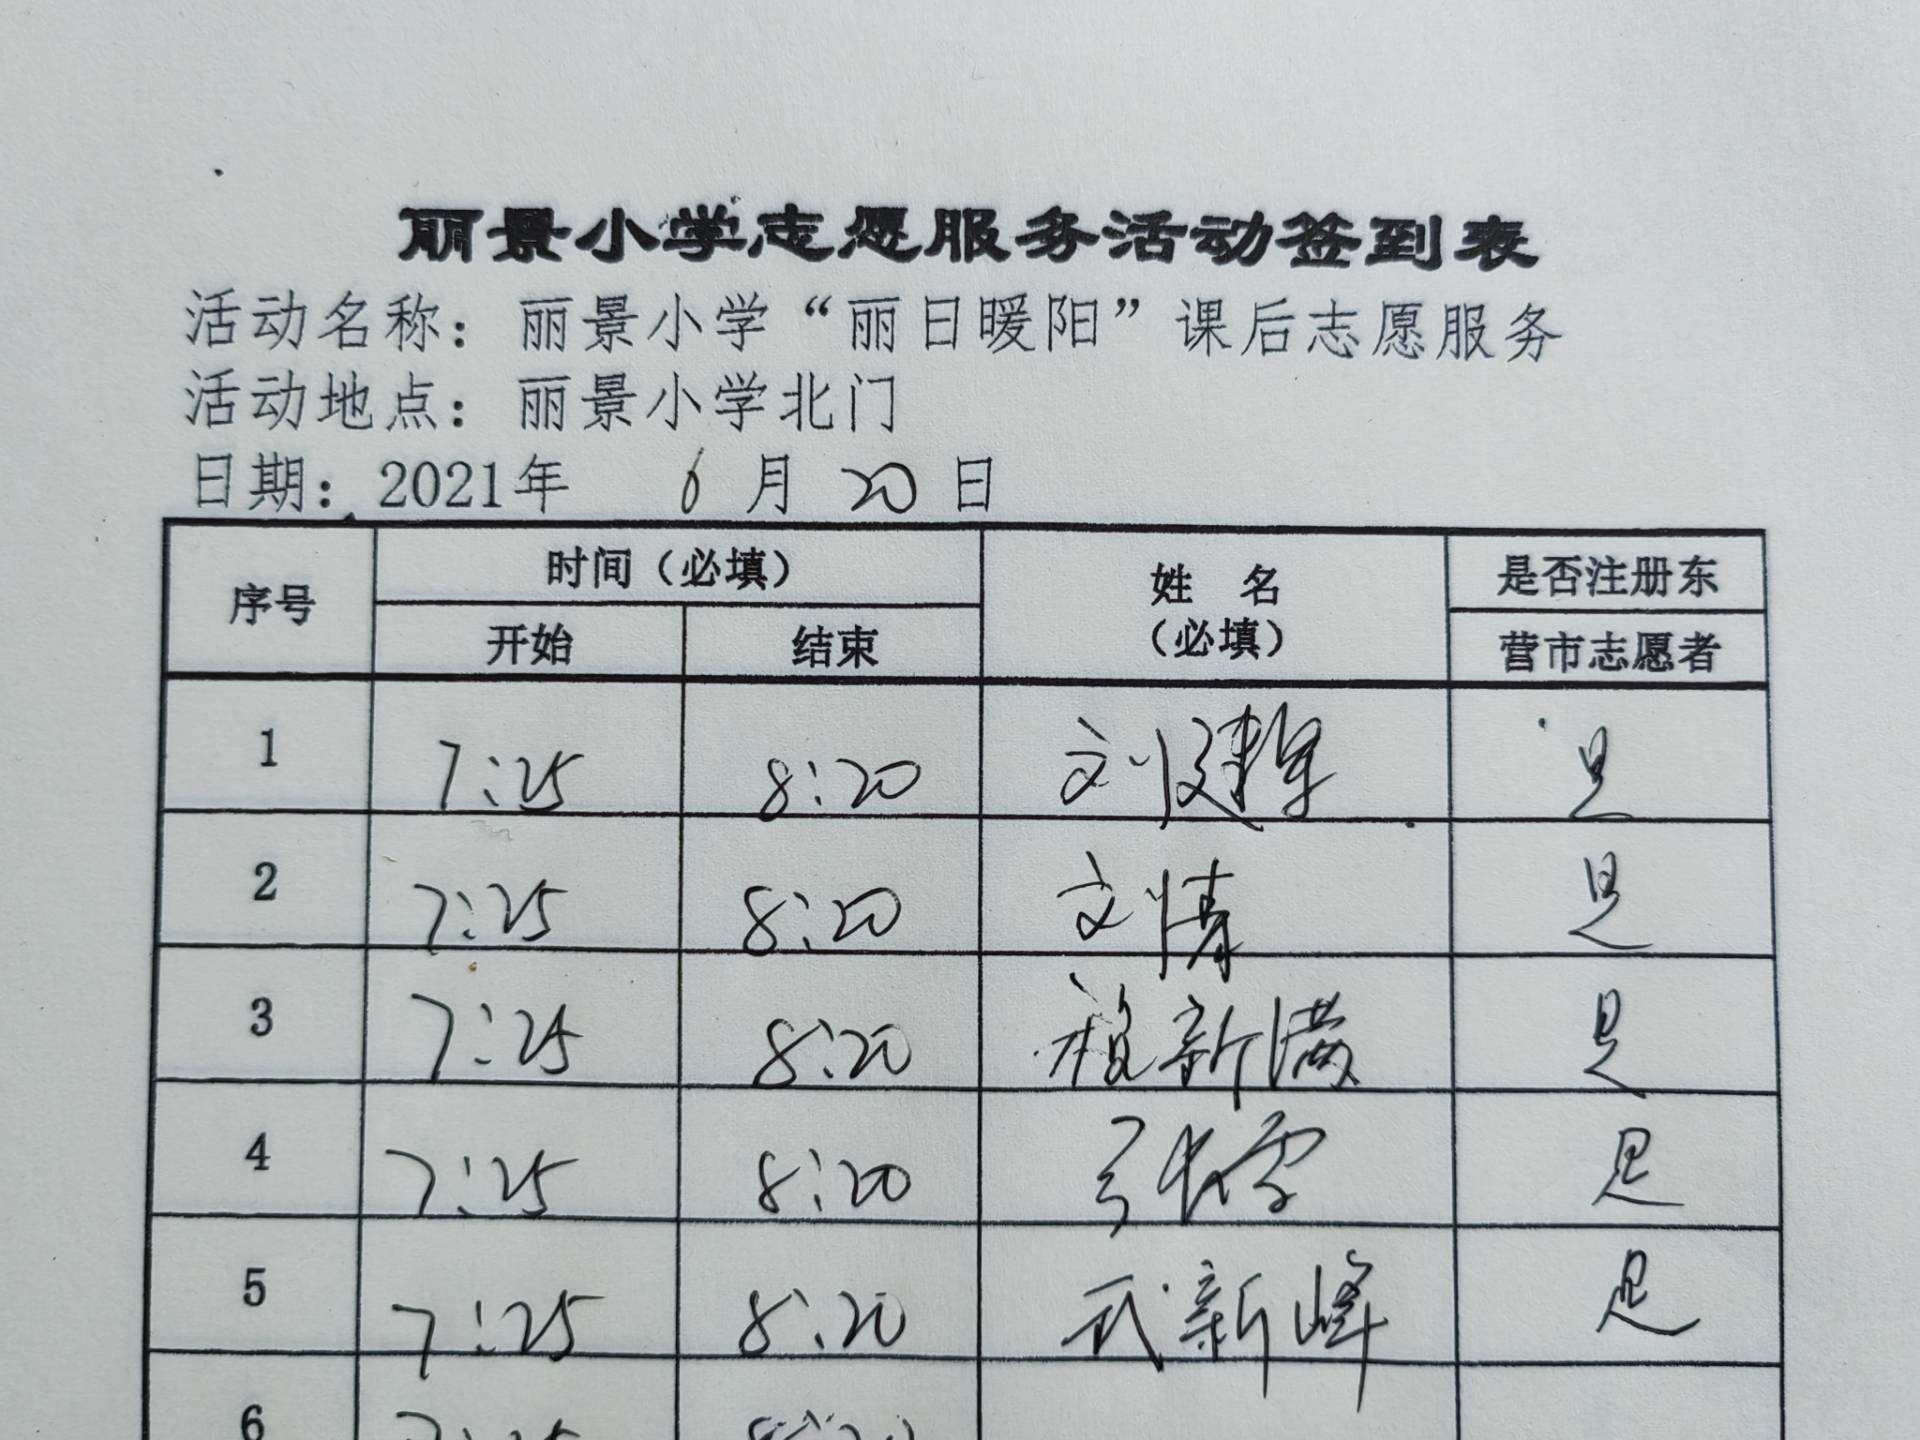 丽景小学志愿服务活动签到表
活动名称：丽景小学“丽日暖阳”课后志愿服务
活动地点：丽景小学北门
日期：2021年 6 月 20 日
序号 时间（必填） 姓 名 是否注册东
开始 结束 （必填） 营市志愿者
1 7:25 8:20 刘建军 是
2 7:25 8:20 刘倩 是
3 7:25 8:20 新满 是
4 7:25 8:20 张雪 是
5 7:25 8:20 武新峰 是
6